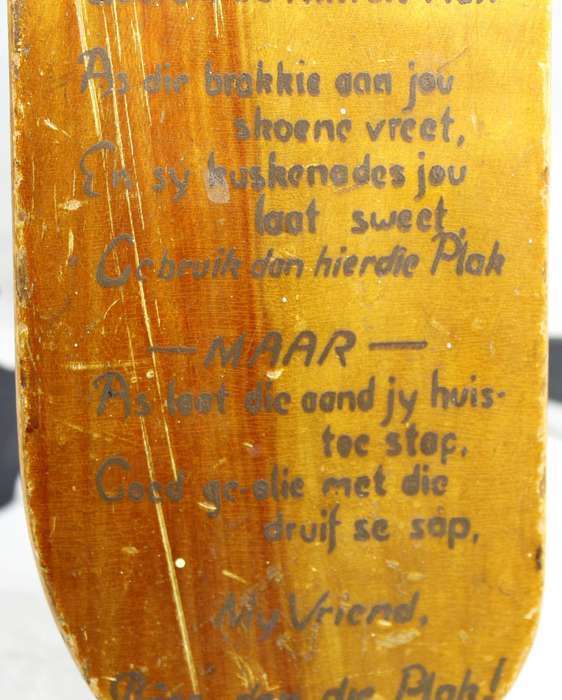 As die brakkie aan jou
skoene vreet,
En sy kuskenades jou
laat sweet,
Gebruik dan hierdie Plak
— MAAR —
As laat die aand jy huis-
toe stap,
Goed ge-olie met die
druif se sop,
My Vriend,
dan die Plak!